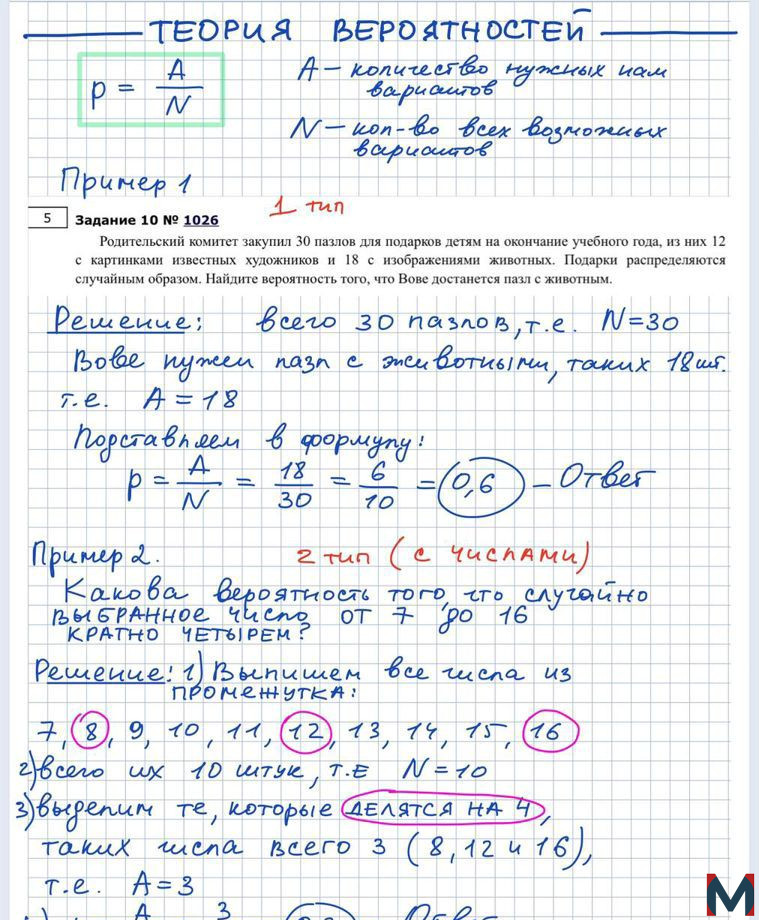 ТЕОРИЯ ВЕРОЯТНОСТЕЙ
p = A/N
A – количество нужных нам
вариантов
N – кол-во всех возможных
вариантов
Пример 1
1 тип
5 Задание 10 № 1026
Родительский комитет закупил 30 пазлов для подарков детям на окончание учебного года, из них 12
с картинками известных художников и 18 с изображениями животных. Подарки распределяются
случайным образом. Найдите вероятность того, что Вове достанется пазл с животным.
Решение: всего 30 пазлов, т.е. N=30
Вове нужен пазл с животными, таких 18 шт.
т.е. A = 18
Подставляем в формулу:
p = A/N = 18/30 = 6/10 = 0,6 – Ответ
Пример 2. 2 тип (с числами)
Какова вероятность того, что случайно
ВЫБРАННОЕ число от 7 до 16
КРАТНО ЧЕТЫРЕМ?
Решение: 1) Выпишем все числа из
ПРОМЕЖУТКА:
7, 8, 9, 10, 11, 12, 13, 14, 15, 16
2) всего их 10 штук, т.е N=10
3) выделим те, которые ДЕЛЯТСЯ НА 4,
таких числа всего 3 (8, 12 и 16),
т.е. A=3
M